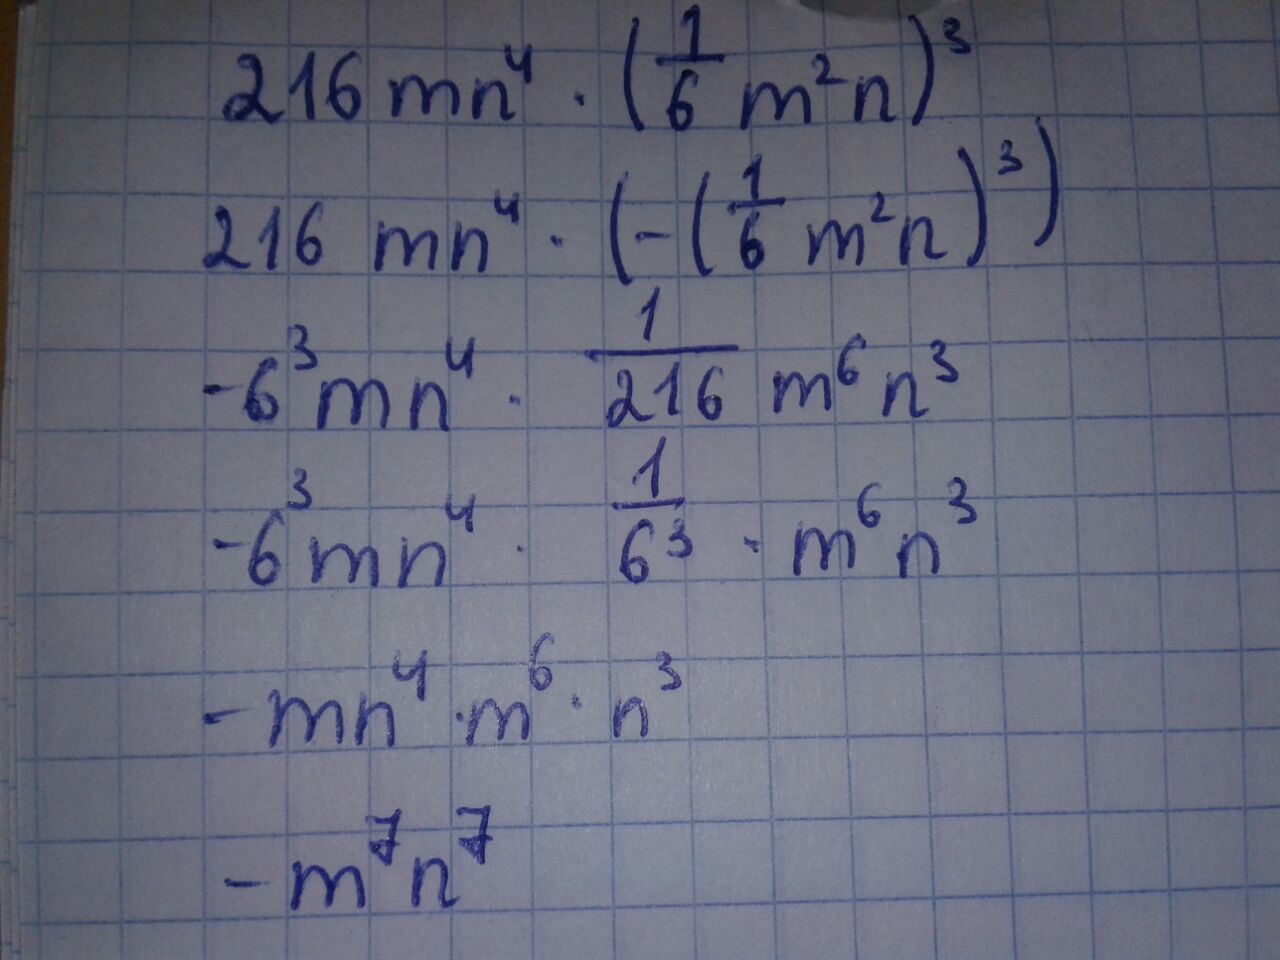 216mn⁴ · (1/6 m²n)³
216 mn⁴ · (-(1/6 m²n)³)
-6³mn⁴ · 1/216 m⁶n³
-6³mn⁴ · 1/6³ · m⁶n³
-mn⁴·m⁶·n³
-m⁷n⁷